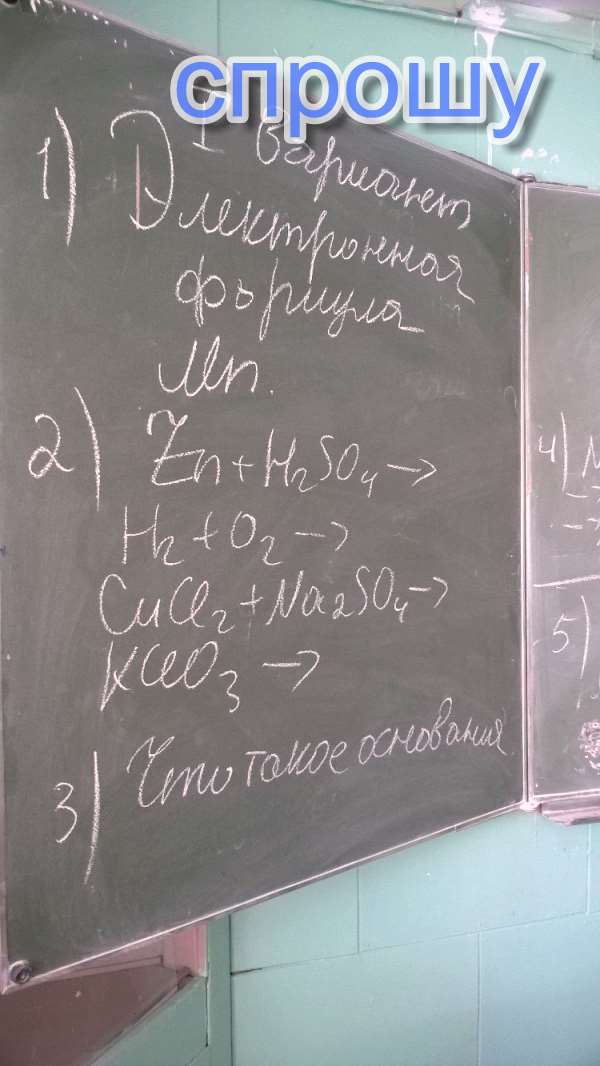 спрошу
I вариант
1) Электронная
формула
Mn.
2) Zn + H₂SO₄ →
H₂ + O₂ →
CuCl₂ + Na₂SO₄ →
KClO₃ →
3) Что такое основания
4) N
→
→
5)